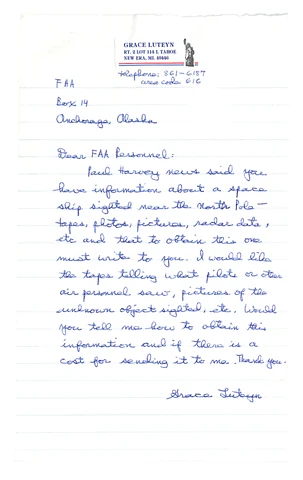 GRACE LUTEYN
RT. 2 LOT 114 L TAHOE
NEW ERA, MI. 49446
telephone: 861-6187
area code 616
FAA
Box 14
Anchorage, Alaska
Dear FAA Personnel:
Paul Harvey news said you
have information about a space
ship sighted near the North Pole —
tapes, photos, pictures, radar data,
etc and that to obtain this one
must write to you. I would like
the tapes telling what pilots or other
air personnel saw, pictures of the
unknown object sighted, etc. Would
you tell me how to obtain this
information and if there is a
cost for sending it to me. Thank you.
Grace Luteyn